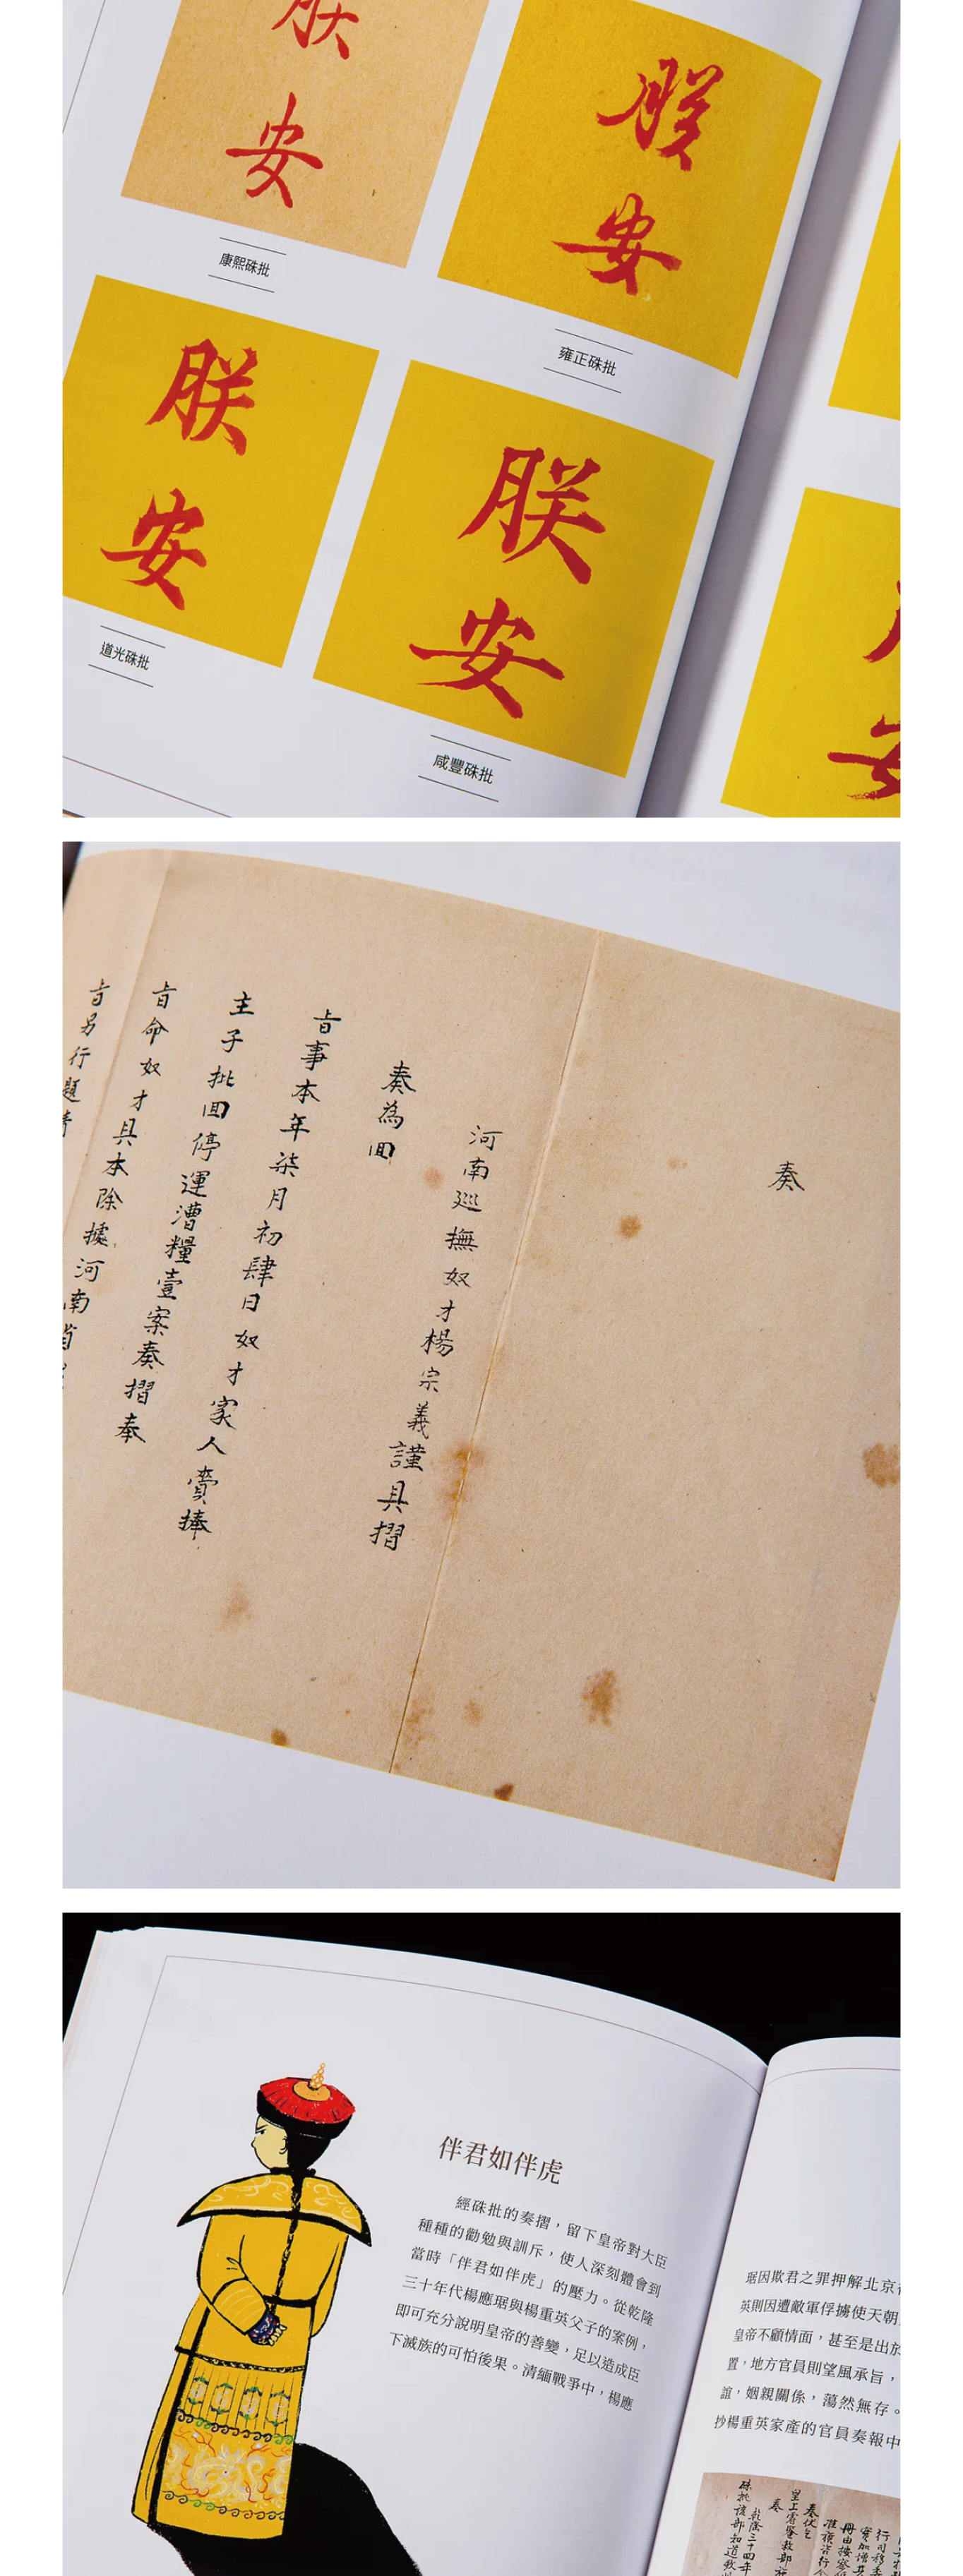 朕
安
康熙硃批
朕
安
雍正硃批
朕
安
道光硃批
朕
安
咸豐硃批
奏
河南巡撫奴才楊宗義謹具摺
奏為回
旨事本年柒月初肆日奴才家人賫捧
主子批回停運漕糧壹案奏摺奉
旨命奴才具本除據河南省
旨另行題請
伴君如伴虎
經硃批的奏摺，留下皇帝對大臣
種種的勸勉與訓斥，使人深刻體會到
當時「伴君如伴虎」的壓力。從乾隆
三十年代楊應琚與楊重英父子的案例，
即可充分說明皇帝的善變，足以造成臣
下滅族的可怕後果。清緬戰爭中，楊應
琚因欺君之罪押解北京
英則因遭敵軍俘擄使天朝
皇帝不顧情面，甚至是出於
置，地方官員則望風承旨，
誼，姻親關係，蕩然無存。
抄楊重英家產的官員奏報中
奏
硃批該部知道